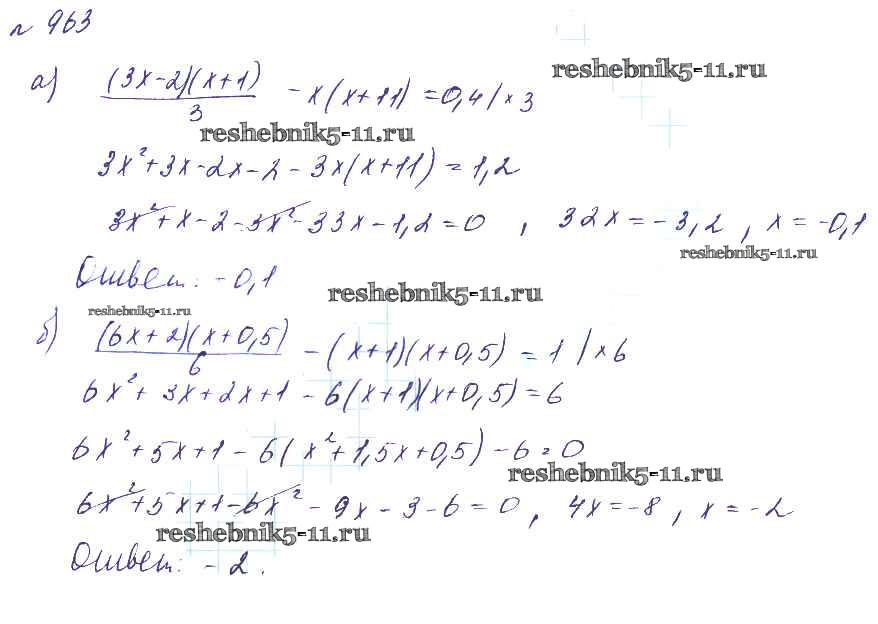 № 963
reshebnik5-11.ru
а) (3x-2)(x+1)/3 - x(x+11) = 0,4 / × 3
reshebnik5-11.ru
3x²+3x-2x-2-3x(x+11) = 1,2
3x²+x-2-3x²-33x-1,2=0 , 32x=-3,2 , x=-0,1
reshebnik5-11.ru
Ответ: -0,1
reshebnik5-11.ru
reshebnik5-11.ru
б) (6x+2)(x+0,5)/6 - (x+1)(x+0,5) = 1 / × 6
6x²+3x+2x+1-6(x+1)(x+0,5)=6
6x²+5x+1-6(x²+1,5x+0,5)-6=0
reshebnik5-11.ru
6x²+5x+1-6x²-9x-3-6=0, 4x=-8, x=-2
reshebnik5-11.ru
Ответ: -2.